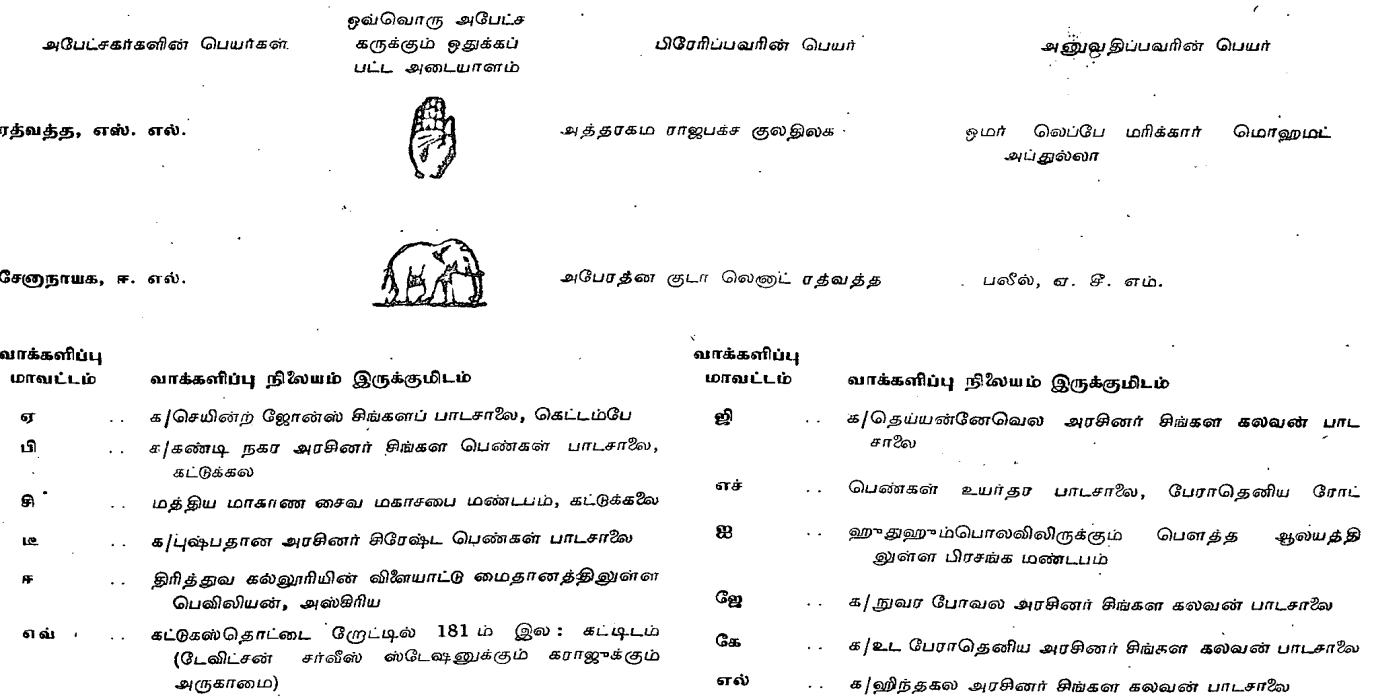 அபேட்சகர்களின் பெயர்கள்
ஒவ்வொரு அபேட்ச
கருக்கும் ஒதுக்கப்
பட்ட அடையாளம்
பிரேரிப்பவரின் பெயர்
அனுவதிப்பவரின் பெயர்
ரத்வத்த, எஸ். எல்.
அத்தரகம ராஜபக்ச குலதிலக
ஒமர் லெப்பே மரிக்கார் மொஹமட்
அப்துல்லா
சேனாநாயக, ஈ. எல்.
அபேரத்ன குடா லெனாட் ரத்வத்த
பலீல், ஏ. சீ. எம்.
வாக்களிப்பு
மாவட்டம் வாக்களிப்பு நிலையம் இருக்குமிடம்
ஏ .. க/செயின்ற் ஜோன்ஸ் சிங்களப் பாடசாலை, கெட்டம்பே
பி .. க/கண்டி நகர அரசினர் சிங்கள பெண்கள் பாடசாலை,
கட்டுக்கல
சி .. மத்திய மாகாண சைவ மகாசபை மண்டபம், கட்டுக்கலை
டீ .. க/புஷ்பதான அரசினர் சிரேஷ்ட பெண்கள் பாடசாலை
ஈ .. திரித்துவ கல்லூரியின் விளையாட்டு மைதானத்திலுள்ள
பெவிலியன், அஸ்கிரிய
எவ் .. கட்டுகஸ்தொட்டை றோட்டில் 181 ம் இல : கட்டிடம்
(டேவிட்சன் சர்வீஸ் ஸ்டேஷனுக்கும் கராஜுக்கும்
அருகாமை)
வாக்களிப்பு
மாவட்டம் வாக்களிப்பு நிலையம் இருக்குமிடம்
ஜி .. க/தெய்யன்னேவெல அரசினர் சிங்கள கலவன் பாட
சாலை
எச் .. பெண்கள் உயர்தர பாடசாலை, பேராதெனிய ரோட்
ஐ .. ஹுதுஹும்பொலவிலிருக்கும் பௌத்த ஆலயத்தி
லுள்ள பிரசங்க மண்டபம்
ஜே .. க/நுவர போவல அரசினர் சிங்கள கலவன் பாடசாலை
கே .. க/உட பேராதெனிய அரசினர் சிங்கள கலவன் பாடசாலை
எல் .. க/ஹிந்தகல அரசினர் சிங்கள கலவன் பாடசாலை